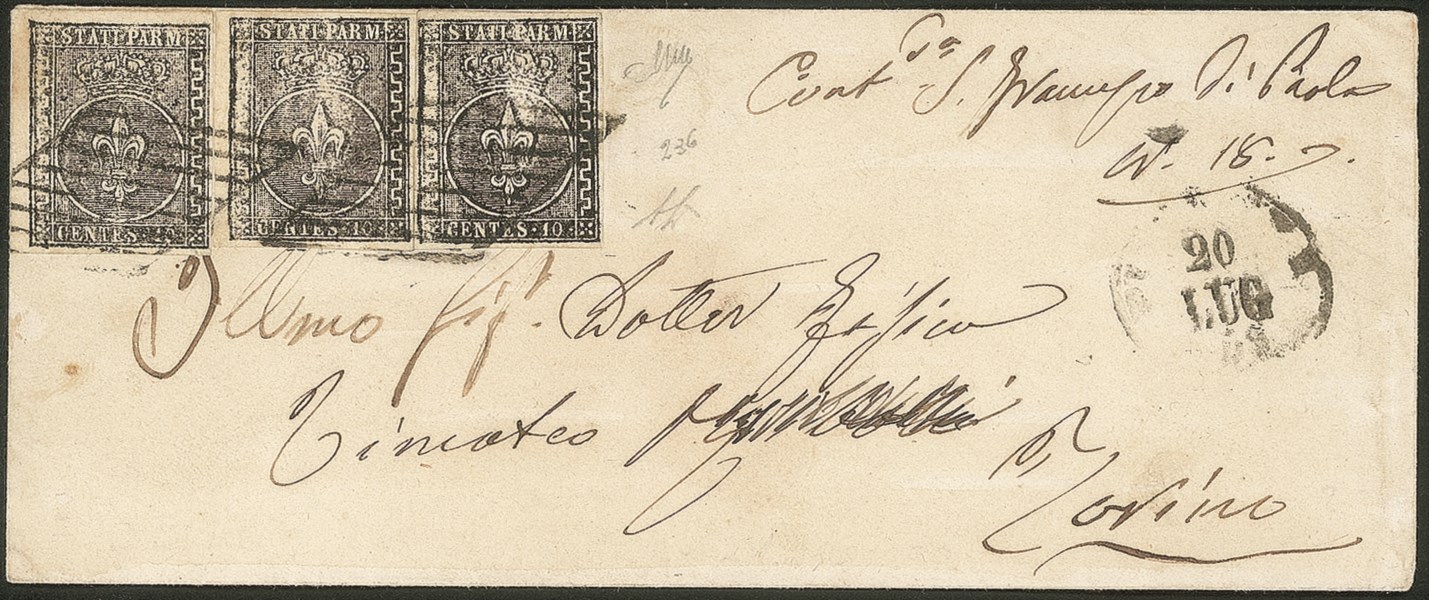 STATI PARM STATI PARM STATI PARM
CENTES. 10 CENTES. 10 CENTES. 10
236
Cont.da S. Francesco Di Paola
N. 18.
20
LUG
Illmo Sig. Dotter Fisico
Timoteo
Torino